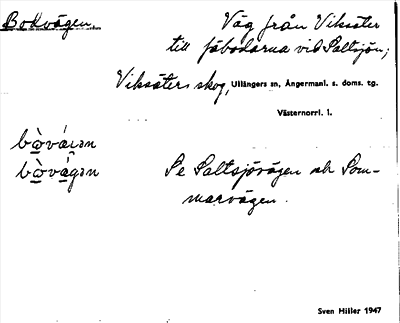 Bodvägen. Väg från Viksäter
till fäbodarna vid Saltsjön;
Viksäters skog, Ullångers sn, Ångermanl. s. doms. tg.
Västernorrl. l.
Se Saltsjövägen och Som-
marvägen.
Sven Hiller 1947